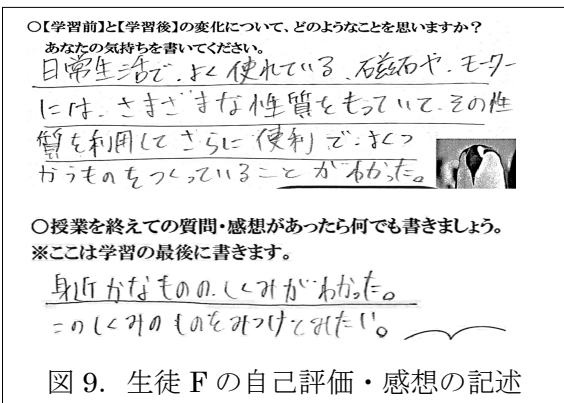 ○【学習前】と【学習後】の変化について、どのようなことを思いますか？
あなたの気持ちを書いてください。
日常生活で、よく使れている、磁石や、モーター
には、さまざまな性質をもっていて、その性
質を利用してさらに便利で、よくつ
かうものをつくっていることがわかった。
○授業を終えての質問・感想があったら何でも書きましょう。
※ここは学習の最後に書きます。
身近かなものの、しくみがわかった。
このしくみのものをみつけてみたい。
図 9. 生徒 F の自己評価・感想の記述